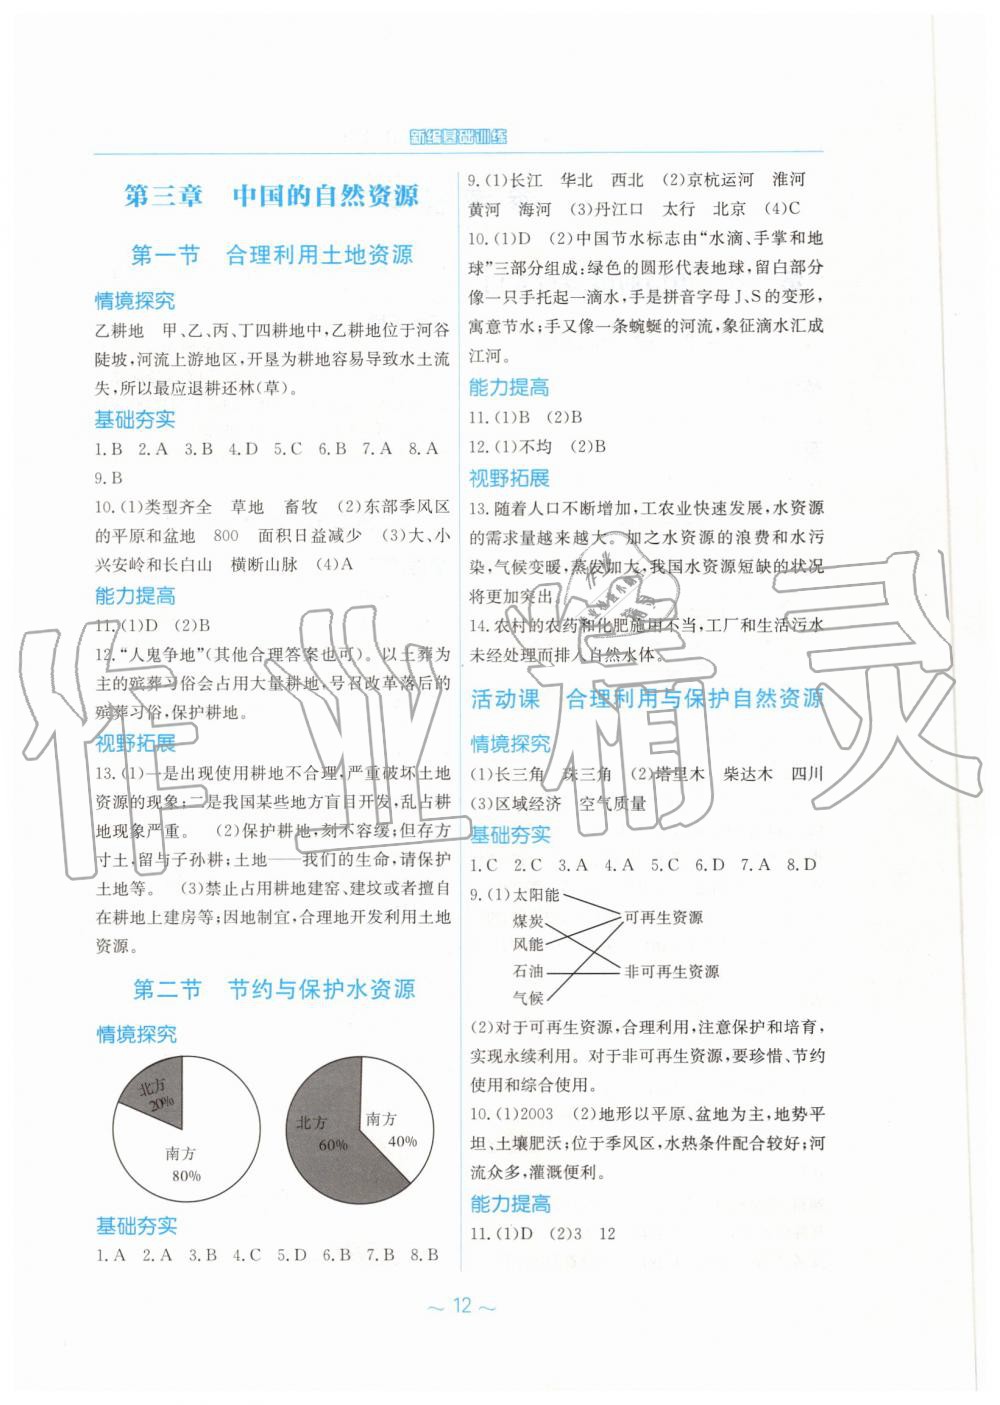 新编基础训练
第三章　中国的自然资源
第一节　合理利用土地资源
情境探究
乙耕地　甲、乙、丙、丁四耕地中，乙耕地位于河谷
陡坡，河流上游地区，开垦为耕地容易导致水土流
失，所以最应退耕还林（草）。
基础夯实
1.B　2.A　3.B　4.D　5.C　6.B　7.A　8.A
9.B
10.(1)类型齐全　草地　畜牧　(2)东部季风区
的平原和盆地　800　面积日益减少　(3)大、小
兴安岭和长白山　横断山脉　(4)A
能力提高
11.(1)D　(2)B
12.“人鬼争地”（其他合理答案也可）。以土葬为
主的殡葬习俗会占用大量耕地，号召改革落后的
殡葬习俗，保护耕地。
视野拓展
13.(1)一是出现使用耕地不合理，严重破坏土地
资源的现象；二是我国某些地方盲目开发，乱占耕
地现象严重。　(2)保护耕地，刻不容缓；但存方
寸土，留与子孙耕；土地——我们的生命，请保护
土地等。　(3)禁止占用耕地建窑、建坟或者擅自
在耕地上建房等；因地制宜，合理地开发利用土地
资源。
第二节　节约与保护水资源
情境探究
北方
20%
南方
80%
北方
60%
南方
40%
基础夯实
1.A　2.A　3.B　4.C　5.D　6.B　7.B　8.B
9.(1)长江　华北　西北　(2)京杭运河　淮河
黄河　海河　(3)丹江口　太行　北京　(4)C
10.(1)D　(2)中国节水标志由“水滴、手掌和地
球”三部分组成：绿色的圆形代表地球，留白部分
像一只手托起一滴水，手是拼音字母J、S的变形，
寓意节水；手又像一条蜿蜒的河流，象征滴水汇成
江河。
能力提高
11.(1)B　(2)B
12.(1)不均　(2)B
视野拓展
13.随着人口不断增加，工农业快速发展，水资源
的需求量越来越大。加之水资源的浪费和水污
染，气候变暖，蒸发加大，我国水资源短缺的状况
将更加突出。
14.农村的农药和化肥施用不当，工厂和生活污水
未经处理而排入自然水体。
活动课　合理利用与保护自然资源
情境探究
(1)长三角　珠三角　(2)塔里木　柴达木　四川
(3)区域经济　空气质量
基础夯实
1.C　2.C　3.A　4.A　5.C　6.D　7.A　8.D
9.(1)太阳能
煤炭
可再生资源
风能
石油
非可再生资源
气候
(2)对于可再生资源，合理利用，注意保护和培育，
实现永续利用。对于非可再生资源，要珍惜、节约
使用和综合使用。
10.(1)2003　(2)地形以平原、盆地为主，地势平
坦、土壤肥沃；位于季风区，水热条件配合较好；河
流众多，灌溉便利。
能力提高
11.(1)D　(2)3　12
～ 12 ～
作业精灵